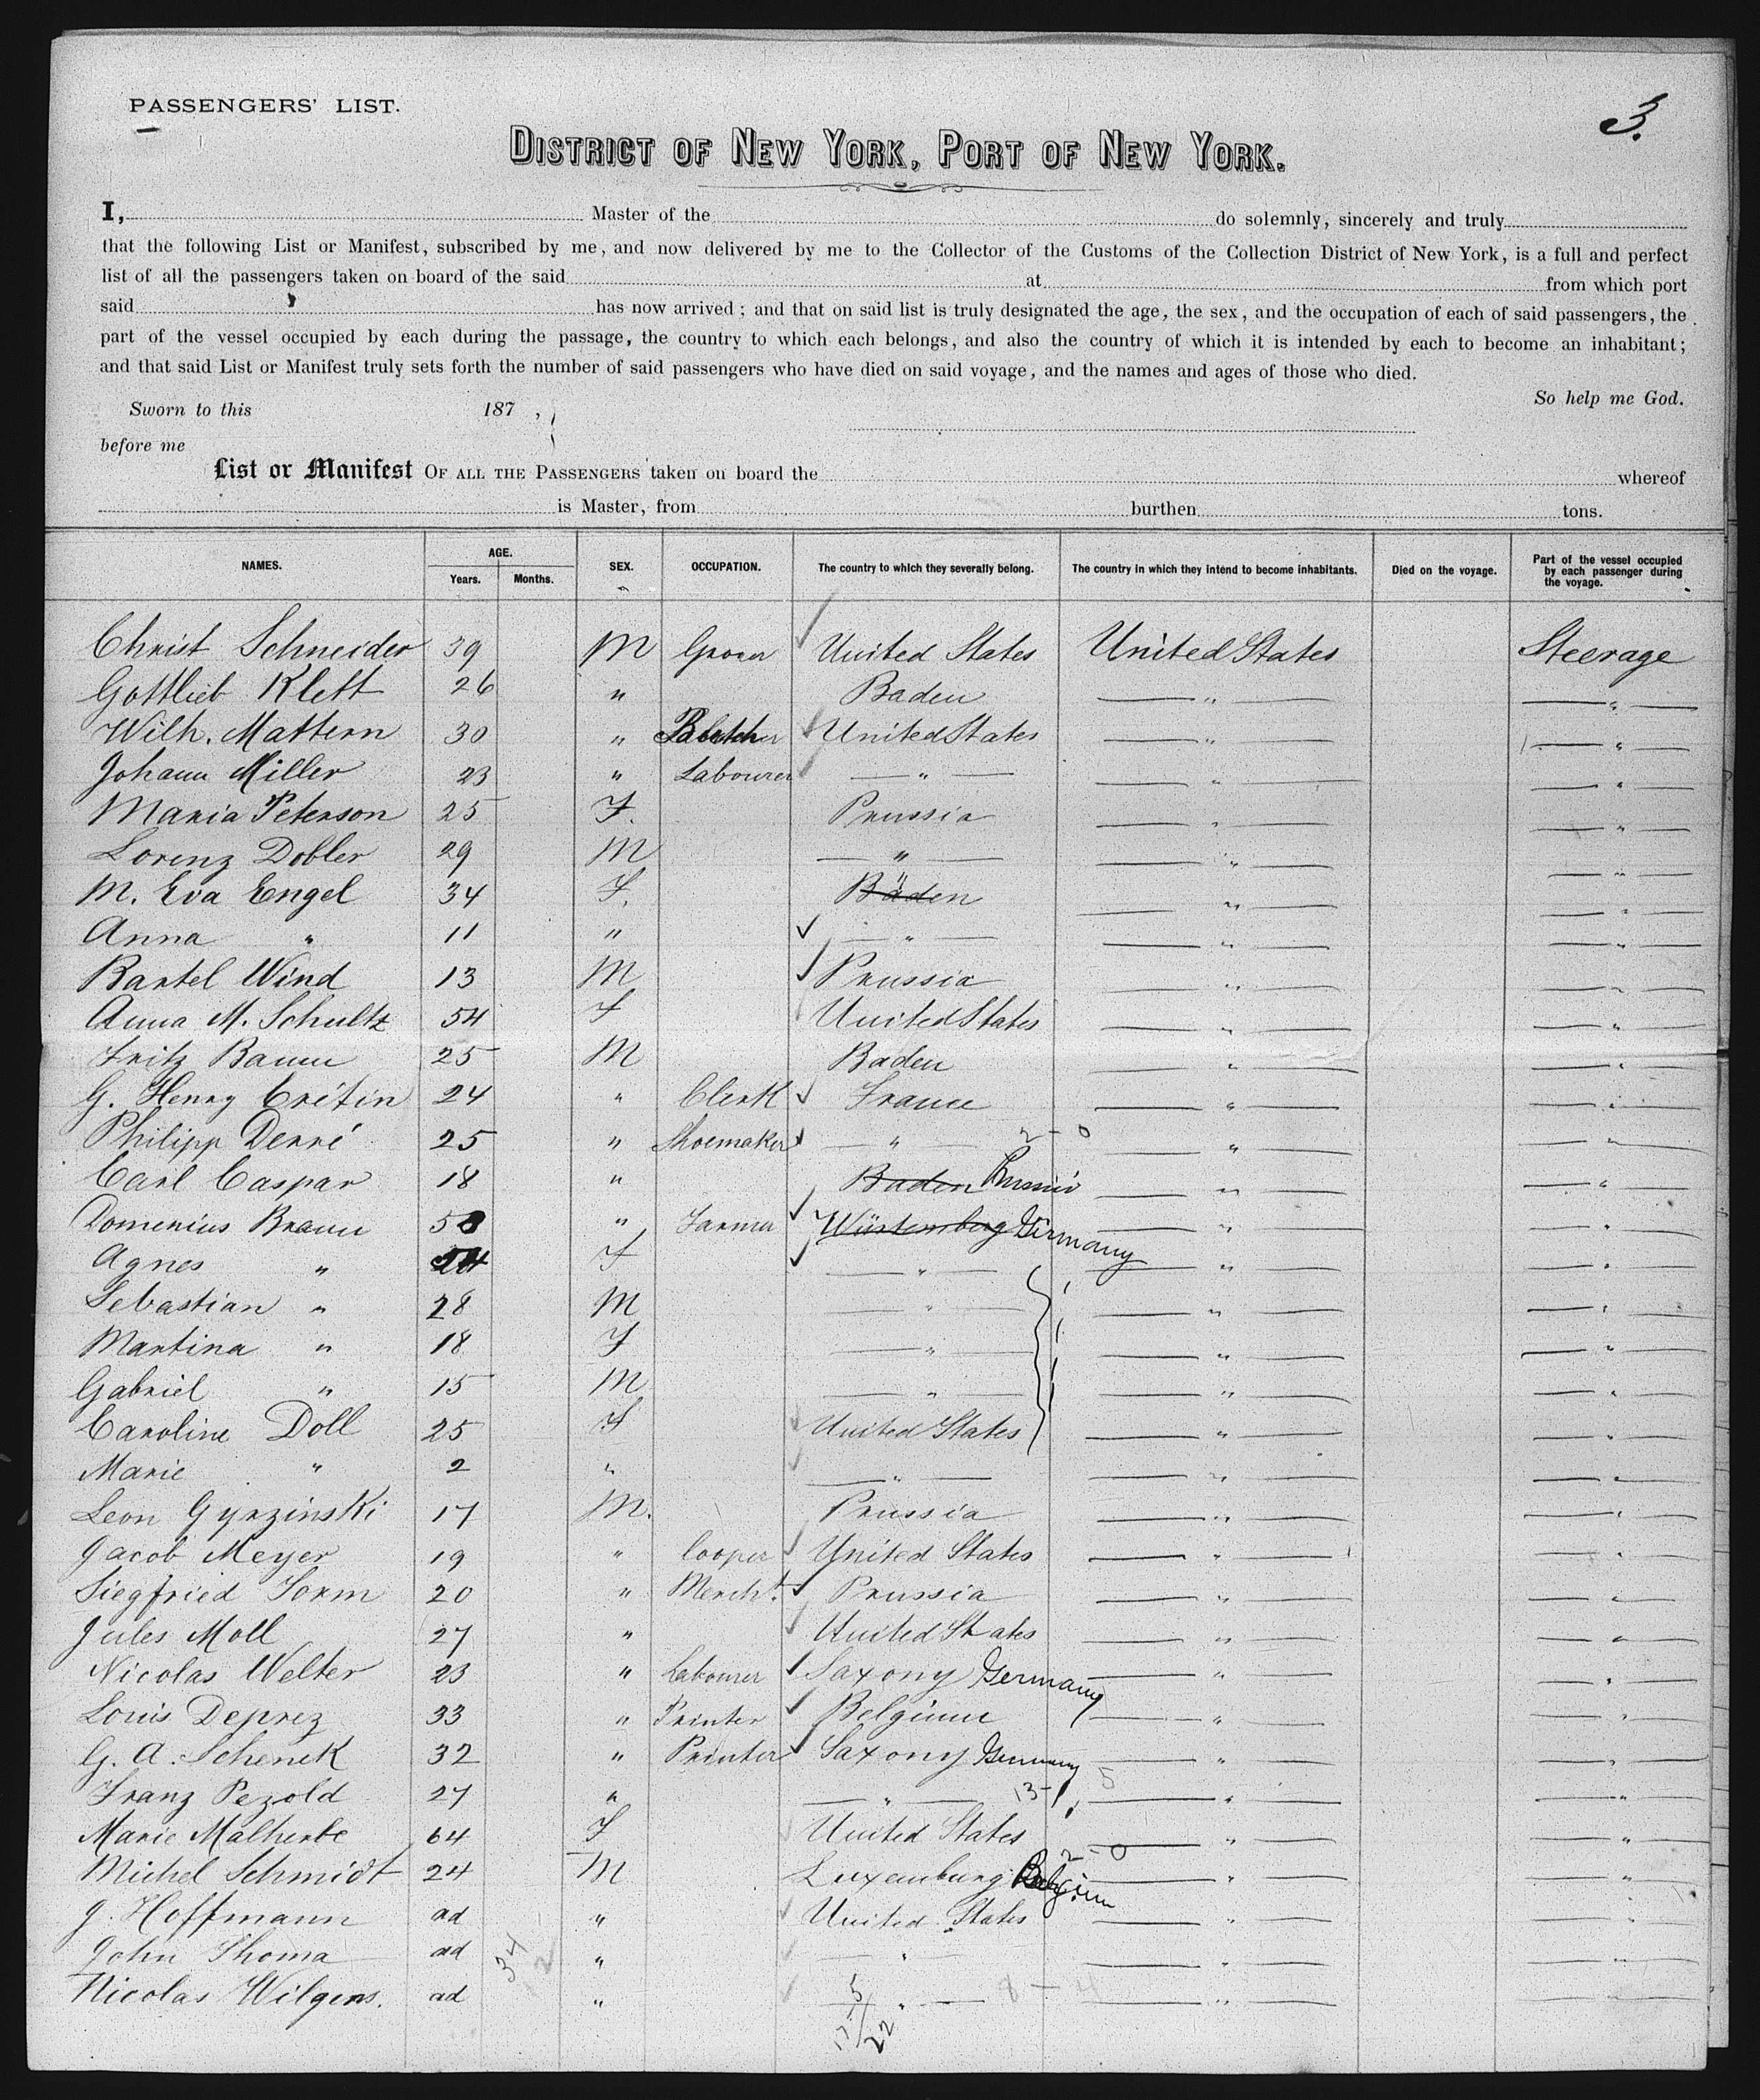 PASSENGERS' LIST.
3.
DISTRICT OF NEW YORK, PORT OF NEW YORK.
I, Master of the do solemnly, sincerely and truly
that the following List or Manifest, subscribed by me, and now delivered by me to the Collector of the Customs of the Collection District of New York, is a full and perfect
list of all the passengers taken on board of the said at from which port
said has now arrived; and that on said list is truly designated the age, the sex, and the occupation of each of said passengers, the
part of the vessel occupied by each during the passage, the country to which each belongs, and also the country of which it is intended by each to become an inhabitant;
and that said List or Manifest truly sets forth the number of said passengers who have died on said voyage, and the names and ages of those who died.
So help me God.
Sworn to this 187 ,
before me
List or Manifest OF ALL THE PASSENGERS taken on board the whereof
is Master, from burthen tons.
NAMES. AGE. Years. Months. SEX. OCCUPATION. The country to which they severally belong. The country in which they intend to become inhabitants. Died on the voyage. Part of the vessel occupied by each passenger during the voyage.
Christ Schneider 39 M Grocer United States United States Steerage
Gottlieb Klett 26 " Baden " "
Wilh. Mattern 30 " Butcher United States " "
Johann Miller 23 " Labourer " " "
Maria Peterson 25 F. Prussia " "
Lorenz Dobler 29 M " " "
M. Eva Engel 34 F. Baden " "
Anna " 11 " " " "
Bartel Wind 13 M Prussia " "
Anna M. Schultz 54 F United States " "
Fritz Baum 25 M Baden " "
G. Henry Crétin 24 " Clerk France " "
Philipp Derré 25 " Shoemaker " 2-0 " "
Carl Caspar 18 " Baden Prussia " "
Domenius Braun 58 " Farmer Würtemberg Germany " "
Agnes " 54 F " " "
Sebastian " 28 M " " "
Martina " 18 F " " "
Gabriel " 15 M " " "
Caroline Doll 25 F United States " "
Marie " 2 " " " "
Leon Gyrzinski 17 M. Prussia " "
Jacob Meyer 19 " Cooper United States " "
Siegfried Sorm 20 " Mercht. Prussia " "
Jules Moll 27 " United States " "
Nicolas Welter 23 " Labourer Saxony Germany " "
Louis Deprez 33 " Printer Belgium " "
G. A. Schenck 32 " Printer Saxony Germany " "
Franz Pezold 27 " " 13-1 5 " "
Marie Malherbe 64 F United States " "
Michel Schmidt 24 M Luxemburg Belgium 2-0 " "
J. Hoffmann ad " United States " "
John Thoma ad " " " "
Nicolas Wilgens. ad " " 8-4 " "
34
5
17/22